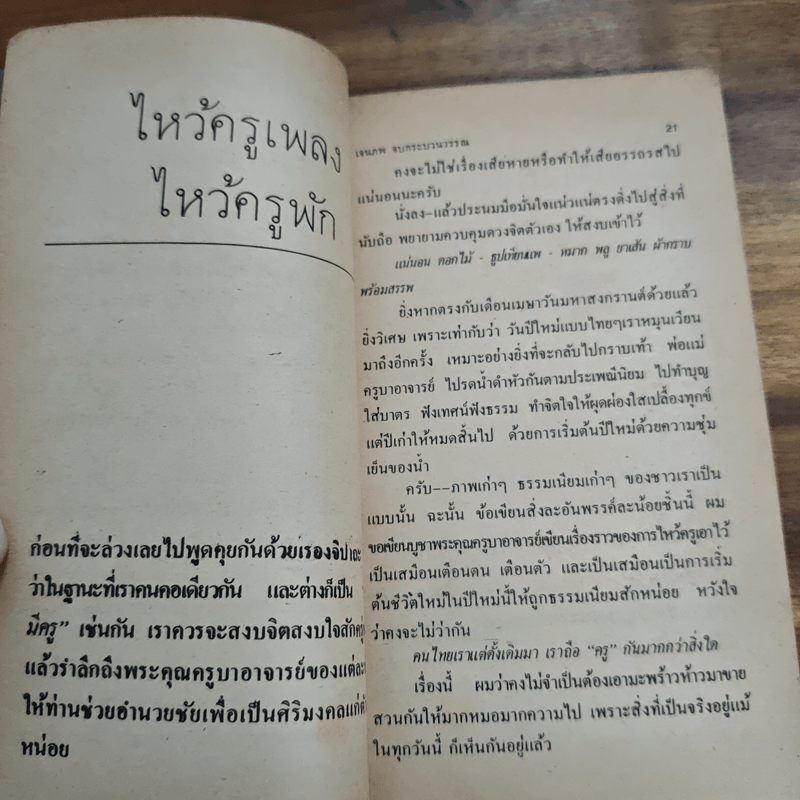 ไหว้ครูเพลง
ไหว้ครูพัก
ก่อนที่จะล่วงเลยไปพูดคุยกันด้วยเรื่องจิปาถะ
ว่าในฐานะที่เราคนคอเดียวกัน และต่างก็เป็น
มีครู” เช่นกัน เราควรจะสงบจิตสงบใจสัก
แล้วรำลึกถึงพระคุณครูบาอาจารย์ของแต่ละ
ให้ท่านช่วยอำนวยชัยเพื่อเป็นศิริมงคลแก่
หน่อย
เจนภพ จบกระบวนวรรณ
21
คงจะไม่ใช่เรื่องเสียหายหรือทำให้เสียอรรถรสไป
แน่นอนนะครับ
นั่งลง-แล้วประนมมือมั่นใจแน่วแน่ตรงดิ่งไปสู่สิ่งที่
นับถือ พยายามควบคุมดวงจิตตัวเอง ให้สงบเข้าไว้
แน่นอน ดอกไม้ - ธูปเทียนแพ - หมาก พลู ยาเส้น ผ้ากราบ
พร้อมสรรพ
ยิ่งหากตรงกับเดือนเมษาวันมหาสงกรานต์ด้วยแล้ว
ยิ่งวิเศษ เพราะเท่ากับว่า วันปีใหม่แบบไทยๆเราหมุนเวียน
มาถึงอีกครั้ง เหมาะอย่างยิ่งที่จะกลับไปกราบเท้า พ่อแม่
ครูบาอาจารย์ ไปรดน้ำดำหัวกันตามประเพณีนิยม ไปทำบุญ
ใส่บาตร ฟังเทศน์ฟังธรรม ทำจิตใจให้ผุดผ่องใสเปลื้องทุกข์
แต่ปีเก่าให้หมดสิ้นไป ด้วยการเริ่มต้นปีใหม่ด้วยความชุ่ม
เย็นของน้ำ
ครับ--ภาพเก่าๆ ธรรมเนียมเก่าๆ ของชาวเราเป็น
แบบนั้น ฉะนั้น ข้อเขียนสิ่งละอันพรรค์ละน้อยชิ้นนี้ ผม
ขอเขียนบูชาพระคุณครูบาอาจารย์เขียนเรื่องราวของการไหว้ครูเอาไว้
เป็นเสมือนเตือนตน เตือนตัว และเป็นเสมือนเป็นการเริ่ม
ต้นชีวิตใหม่ในปีใหม่นี้ให้ถูกธรรมเนียมสักหน่อย หวังใจ
ว่าคงจะไม่ว่ากัน
คนไทยเราแต่ดั้งเดิมมา เราถือ “ครู” กันมากกว่าสิ่งใด
เรื่องนี้ ผมว่าคงไม่จำเป็นต้องเอามะพร้าวห้าวมาขาย
สวนกันให้มากหมอมากความไป เพราะสิ่งที่เป็นจริงอยู่แม้
ในทุกวันนี้ ก็เห็นกันอยู่แล้ว